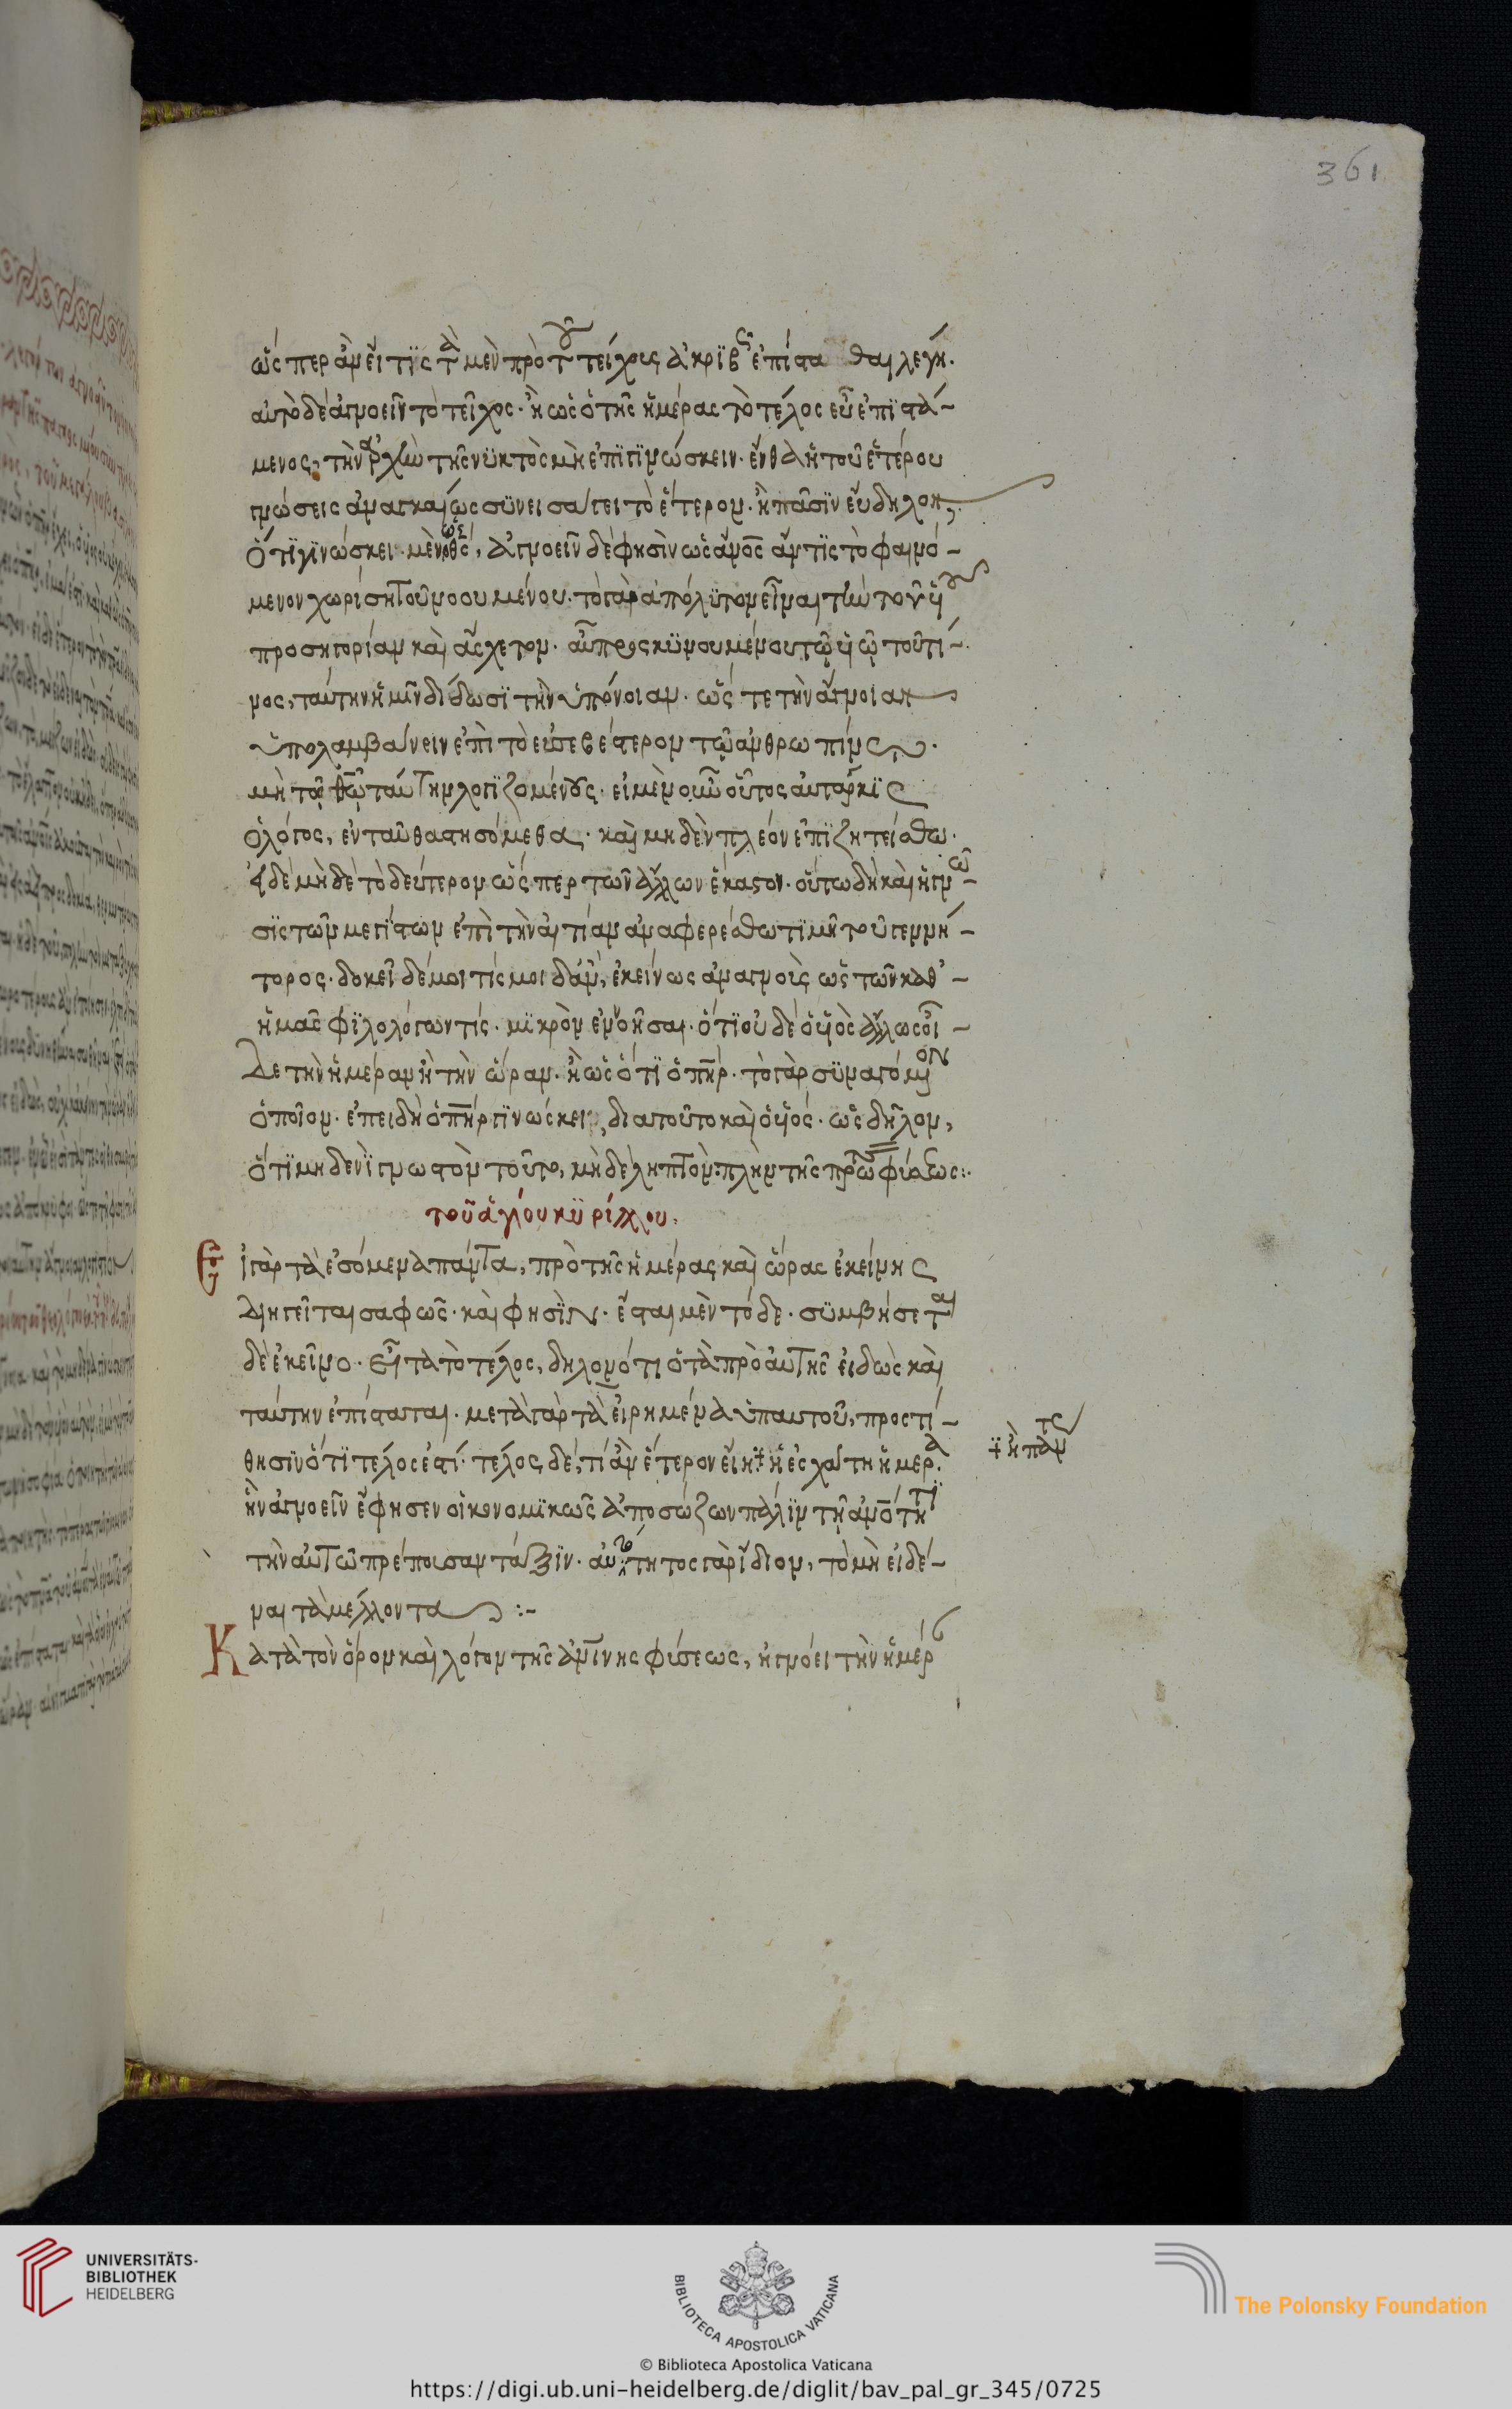 361
ὥσπερ ἂν εἴ τις τὰ μὲν πρὸ τοῦ τείχους ἀκριβῶς ἐπίστασθαι λέγη.
αὐτὸ δὲ ἀγνοεῖν τὸ τεῖχος. ἢ ὡς ὁ τῆς ἡμέρας τὸ τέλος εὖ ἐπϊστά-
μενος, τὴν ἀρχὴν τῆς νϋκτὸς μὴ ἐπϊγϊνώσκειν. ἔνθα ἡ τοῦ ἑτέρου
γνώσεις ἀναγκαίως σϋνεισάγει τὸ ἕτερον. ἢ πᾶσϊν εὔδηλον,
ὅτϊ γϊνώσκει μὲν ὡς θς, ἀγνοεῖν δέ φησὶν ὡς ἄνος ἄν τϊς τὸ φαινό-
μενον χωρίση τοῦ νοουμένου. τὸ γὰρ ἀπόλϋτον εἶναι τὴν τοῦ υἱοῦ
προσηγορίαν καὶ ἄσχετον. οὐ προσκϋνουμένου τῷ υἱῷ τοῦ τί-
νος, ταύτην ἡμῖν δίδωσϊ τὴν ὑπόνοιαν. ὥστε τὴν ἄγνοιαν
ὑπολαμβάνειν ἐπὶ τὸ εὐσεβέστερον τῷ ἀνθρωπίνῳ.
μὴ τῷ θῷ ταύτην λογϊζομένους. εἰ μὲν οὖν οὗτος αὐτάρκϊς
ὁ λόγος, ἐνταῦθα στησόμεθα. καὶ μηδὲν πλέον ἐπϊζητείσθω.
εἰ δὲ μὴ δὲ τὸ δεύτερον ὥσπερ τῶν ἄλλων ἕκαστον. οὕτω δὴ καὶ ἡ γνῶ-
σϊς τῶν μεγίστων ἐπὶ τὴν αἰτίαν ἀναφερέσθω τϊμῆ τοῦ γεννή-
τορος. δοκεῖ δέ μοι τίς μοι δ᾽ ἄν, ἐκείνως ἀναγνοὺς ὡς τῶν καθ᾽-
ἡμᾶς φϊλολόγων τίς. μϊκρὸν ἐννοῆσαι. ὅτϊ οὐδὲ ὁ υἱὸς ἄλλως οἶ-
δε τὴν ἡμέραν ἢ τὴν ὥραν. ἢ ὡς ὅτϊ ὁ πηρ. τὸ γὰρ σϋναγόμενον
ὁποῖον. ἐπειδὴ ὁ πηρ γϊνώσκει, διατοῦτο καὶ ὁ υἱός. ὡς δῆλον,
ὅτϊ μηδενὶ γνωστὸν τοῦτο, μὴ δὲ ληπτὸν πλὴν τῆς πρώ φύσεως:.
τοῦ ἁγίου κϋρίλλου.
Εἰ γὰρ τὰ ἐσόμενα πάντα, πρὸ τῆς ἡμέρας καὶ ὥρας ἐκείνης
διηγεῖται σαφῶς. καὶ φησὶν. ἔσται μὲν τόδε. σϋμβήσεται
δὲ ἐκεῖνο. εἶτα τὸ τέλος, δηλονότι ὁ τὰ πρὸ αὐτῆς εἰδὼς καὶ
ταύτην ἐπίσταται. μετὰ γὰρ τὰ εἰρημένα ὑπ αυτοῦ, προστί-
θησϊν ὅτϊ τέλος ἐστί. τέλος δέ, τί ἂν ἕτερον εἴη ⁜ ἢ ἐσχάτη ἡμέρα.
⁜ ἢ πάντως
ἣν ἀγνοεῖν ἔφησεν οἰκονομϊκῶς ἀποσώζων πάλϊν τῇ ἀνότητϊ
τὴν αὐτῶ πρέπουσαν τάξϊν. ἀνοτητος γὰρ ἴδιον, τὸ μὴ εἰδέ-
ναι τὰ μέλλοντα :-
Κατὰ τὸν ὅρον καὶ λόγον τῆς ἀνίνης φύσεως, ἠγνόει τὴν ἡμέραν
UNIVERSITÄTS-
BIBLIOTHEK
HEIDELBERG
BIBLIOTECA APOSTOLICA VATICANA
The Polonsky Foundation
© Biblioteca Apostolica Vaticana
https://digi.ub.uni-heidelberg.de/diglit/bav_pal_gr_345/0725